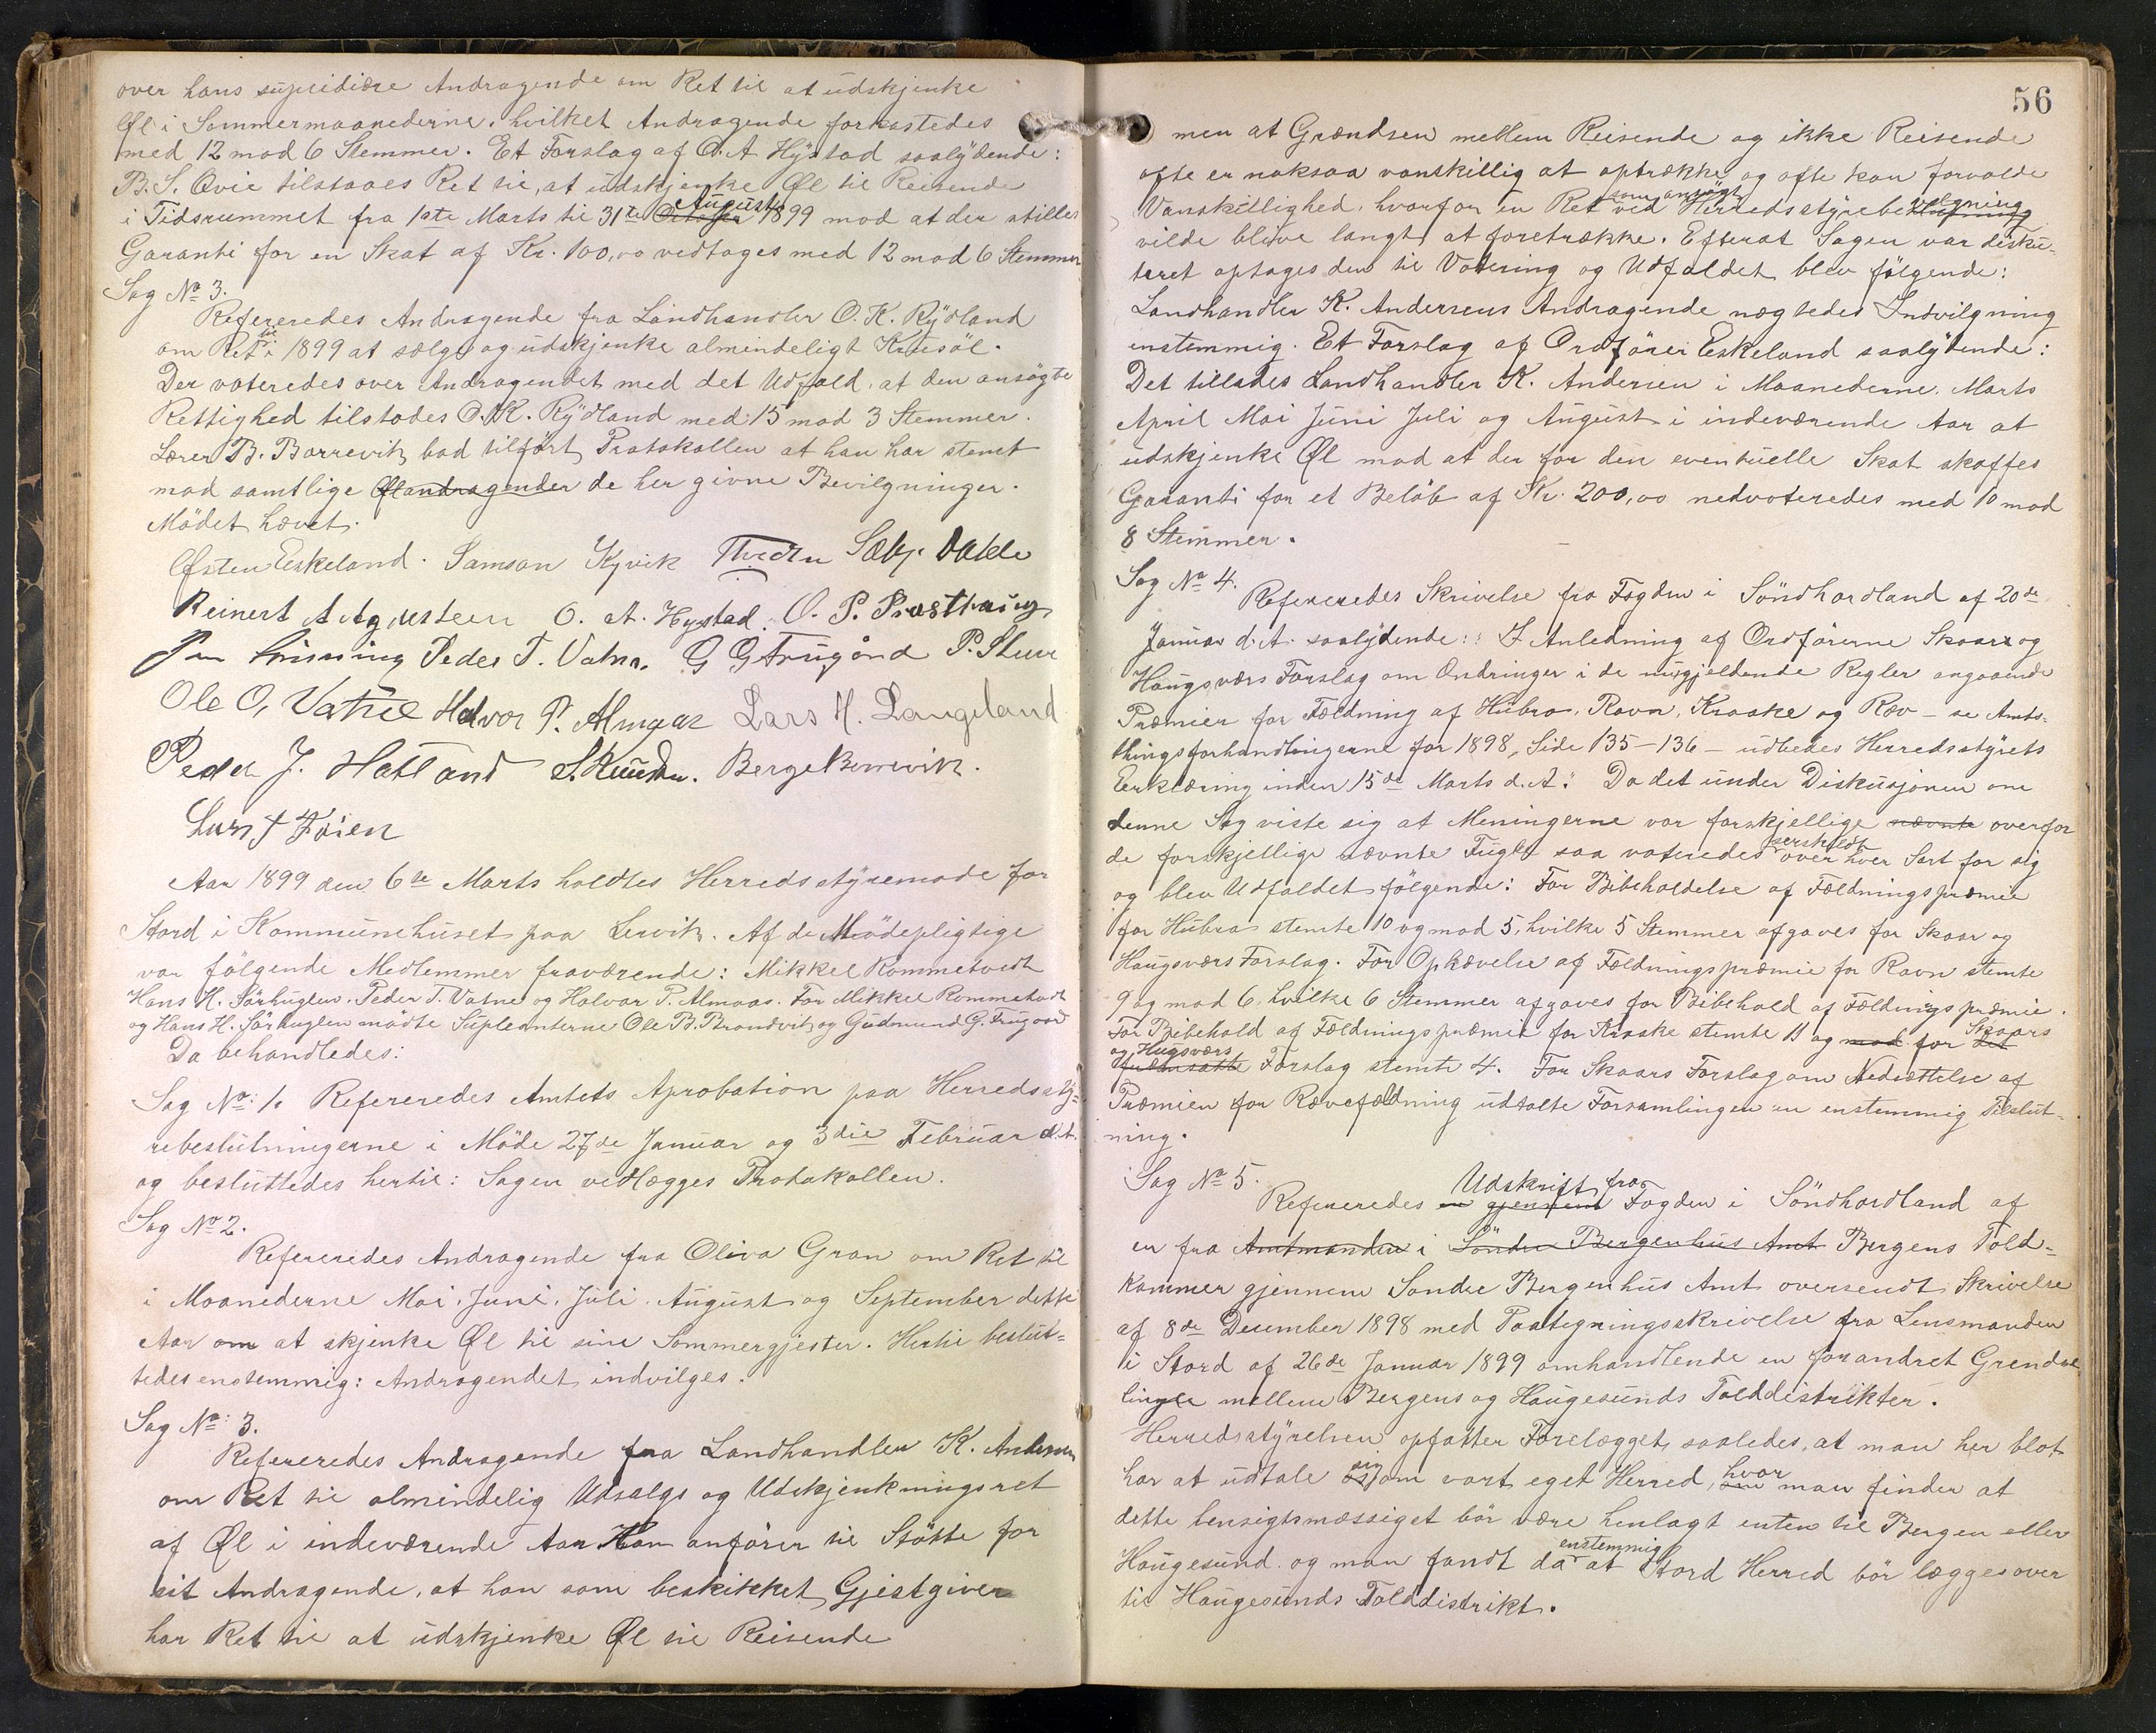 over hans supsidiære Andragende om Ret til at udskjenke
Øl i Sommermaanederne, hvilket Andragende forkastedes
med 12 mod 6 Stemmer. Et Forslag af O. A. Hystad saalydende:
B. S. Ovie tilstaaes Ret til, at udskjenke Øl til Reisende
i Tidsrummet fra 1ste Marts til 31te October August 1899 mod at der stilles
Garanti for en Skat af Kr. 100,00 vedtages med 12 mod 6 Stemmer
Sag No 3.
Refereredes Andragende fra Landhandler O. K. Rydland
om Ret til i 1899 at sælge og udskjenke almindeligt Krusøl.
Der voteredes over Andragendet med det Udfald, at den ansøgte
Rettighed tilstodes O. K. Rydland med 15 mod 3 Stemmer.
Lærer B. Borrevik bad tilført Protokollen at han har stemt
mod samtlige Ølandragender de her givne Bevilgninger.
Mødet hævet.
Østen Eskeland. Samson Kyvik
Reinert A Agdesteen O. A. Hystad. O. P. Presthaug
Peder T. Vatna. G G Frugård
Ole O, Vatne Halvor P. Almaas Lars H. Langeland
Peder J. Hatland S. Knudsen. Berge Borrevik.
Lars J Føien
Aar 1899 den 6te Marts holdtes Herredsstyremøde for
Stord i Kommunehuset paa Lervik. Af de Mødepligtige
var følgende Medlemmer fraværende: Mikkel Rommetvedt
Hans H. Sørhuglen. Peder T. Vatne og Halvor P. Almaas. For Mikkel Rommetvedt
og Hans H. Sørhuglen mødte Supleanterne Ole B. Brandvik og Gudmund G. Frugaard
Da behandledes:
Sag No: 1. Refereredes Amtets Aprobation paa Herredssty-
rebeslutningerne i Møde 27de Januar og 3die Februar d. A.
og besluttedes hertil: Sagen vedlægges Protokollen.
Sag No 2.
Refereredes Andragende fra Oliva Gran om Ret til
i Maanederne Mai, Juni, Juli, August og September dette
Aar om at skjenke Øl til sine Sommergjester. Hertil beslut-
tedes enstemmig: Andragendet indvilges.
Sag No: 3.
Refereredes Andragende fra Landhandler K. Andersen
om Ret til almindelig Udsalgs og Udskjenkningsret
af Øl i indeværende Aar Han anfører til Støtte for
sit Andragende, at han som beskikket Gjestgiver
har Ret til at udskjenke Øl til Reisende
56
men at Grændsen mellem Reisende og ikke Reisende
ofte er noksaa vanskillig at optrække og ofte kan forvolde
Vanskillighed, hvorfor en Ret som ansøgt ved Herredsstyrebevilgning
vilde blive langt at foretrække. Efterat Sagen var disku-
teret optages den til Votering og Udfaldet blev følgende:
Landhandler K. Andersens Andragende nægtedes Indvilgning
enstemmig. Et Forslag af Ordfører Eskeland saalydende:
Det tillades Landhandler K. Andersen i Maanederne, Marts
April Mai Juni Juli og August i indeværende Aar at
udskjenke Øl mod at der for den eventuelle Skat skaffes
Garanti for et Beløb af Kr. 200,00 nedvoteredes med 10 mod
8 Stemmer.
Sag No 4.
Refereredes Skrivelse fra Fogden i Søndhordland af 20de
Januar d. A. saalydende: I Anledning af Ordførerne Skaars og
Haugsværs Forslag om Ændringer i de nugjeldende Regler angaaende
Præmier for Fældning af Hubro, Ravn, Kraake og Ræv – se Amts-
thingsforhandlingerne for 1898, Side 135–136 – udbedes Herredsstyrets
Erklæring inden 15de Marts d. A." Da det under Diskusjonen om
denne Sag viste sig at Meningerne var forskjellige nævnte overfor
de forskjellige nævnte Fugle saa voteredes serskildt over hver Sort for sig
og blev Udfaldet følgende: For Bibeholdelse af Fældningspræmie
for Hubro stemte 10 og mod 5, hvilke 5 Stemmer afgaves for Skaar og
Haugsværs Forslag. For Ophævelse af Fældningspræmie for Ravn stemte
9 og mod 6, hvilke 6 Stemmer afgaves for Bibehold af Fældningspræmie.
For Bibehold af Fældningspræmie for Kraake stemte 11 og mod for det Skaars
og Hugsværs fræmsatte Forslag stemte 4. For Skaars Forslag om Nedsættelse af
Præmien for Rævefældning udtalte Forsamlingen en enstemmig Tilslut-
ning.
Sag No 5.
Refereredes en gjennem Udskrift fra Fogden i Søndhordland af
en fra Amtmanden i Søndre Bergenhus Amt Bergens Told-
kammer gjennem Søndre Bergenhus Amt oversendt Skrivelse
af 8de December 1898 med Paategningsskrivelse fra Lensmanden
i Stord af 26de Januar 1899 omhandlende en forandret Grendse
linje mellem Bergens og Haugesunds Tolddistrikter.
Herredsstyrelsen opfatter Forelægget saaledes, at man her blot
har at udtale sig om vort eget Herred, hvor man finder at
dette hensigtsmæssiget bør være henlagt enten til Bergen eller
Haugesund og man fandt da enstemmig at Stord Herred bør lægges over
til Haugesunds Tolddistrikt.